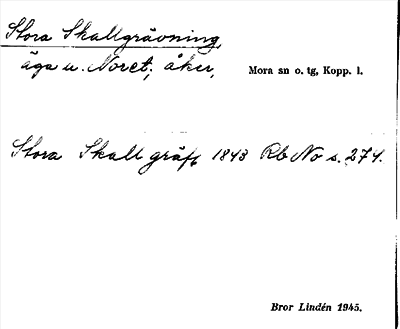 Stora Skallgrävning,
äga u. Noret; åker, Mora sn o. tg, Kopp. l.
Stora Skall gräft 1843 Rb No s. 274.
Bror Lindén 1945.